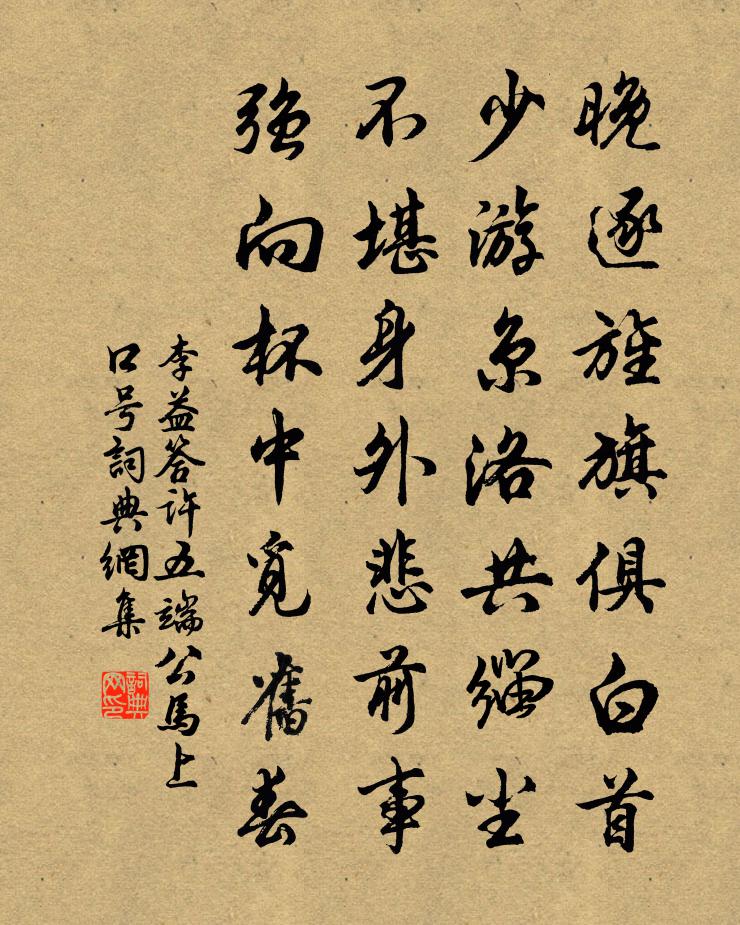 晚逐旌旗俱白首
少游京洛共缁尘
不堪身外悲前事
强向杯中觅舊春
李益答许五端公馬上
口号詞典網集
詞典
网印